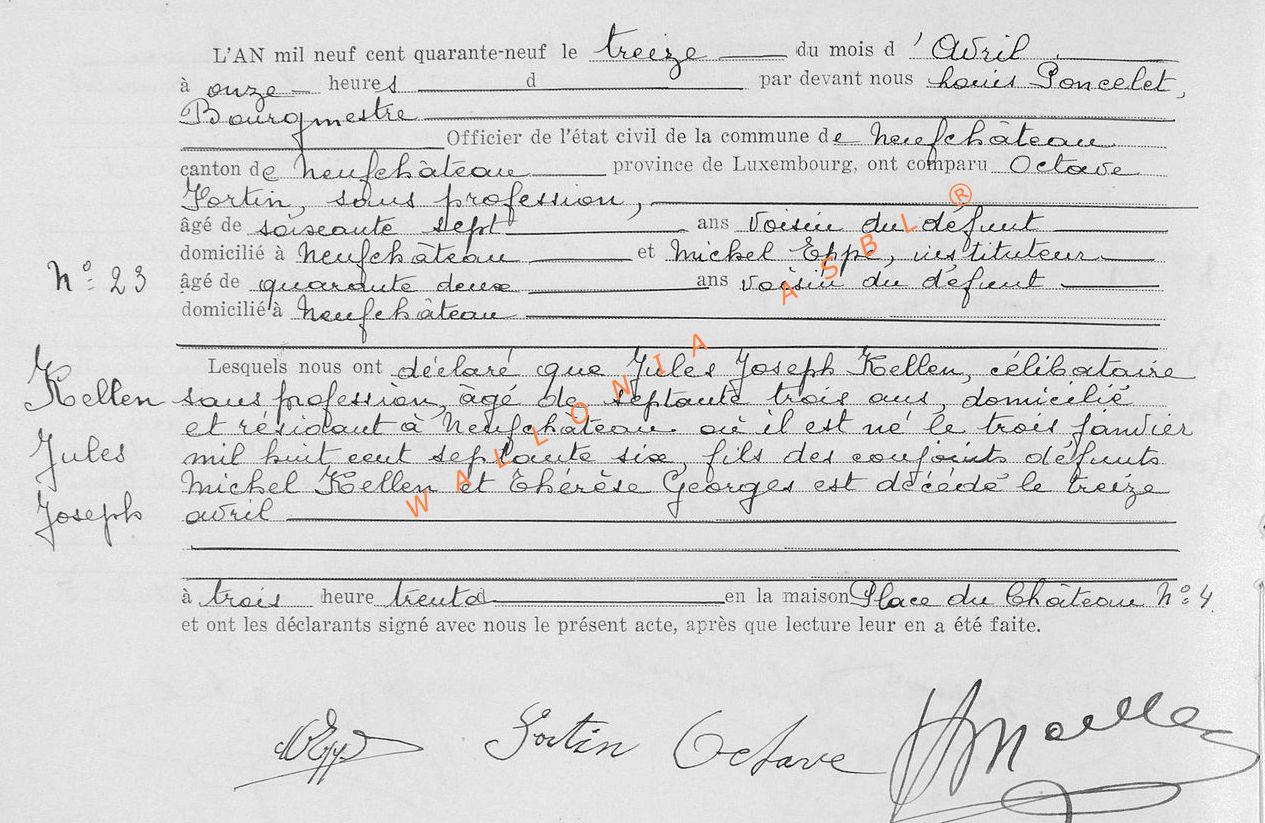 L'AN mil neuf cent quarante-neuf le treize du mois d'Avril
à onze heures d par devant nous Louis Poncelet,
Bourgmestre
Officier de l'état civil de la commune de Neufchâteau
canton de Neufchâteau province de Luxembourg, ont comparu Octave
Fortin, sans profession,
âgé de soixante sept ans voisin du défunt
domicilié à Neufchâteau et Michel Eppe, instituteur
N° 23
âgé de quarante deux ans voisin du défunt
domicilié à Neufchâteau
Lesquels nous ont déclaré que Jules Joseph Kellen, célibataire
Kellen
sans profession, âgé de septante trois ans, domicilié
et résidant à Neufchâteau où il est né le trois janvier
Jules
mil huit cent septante six, fils des conjoints défunts
Michel Kellen et Thérèse Georges est décédé le treize
Joseph
avril
à trois heure trente d en la maison Place du Château N° 4
et ont les déclarants signé avec nous le présent acte, après que lecture leur en a été faite.
Fortin Octave
WALLONIA ASBL ®